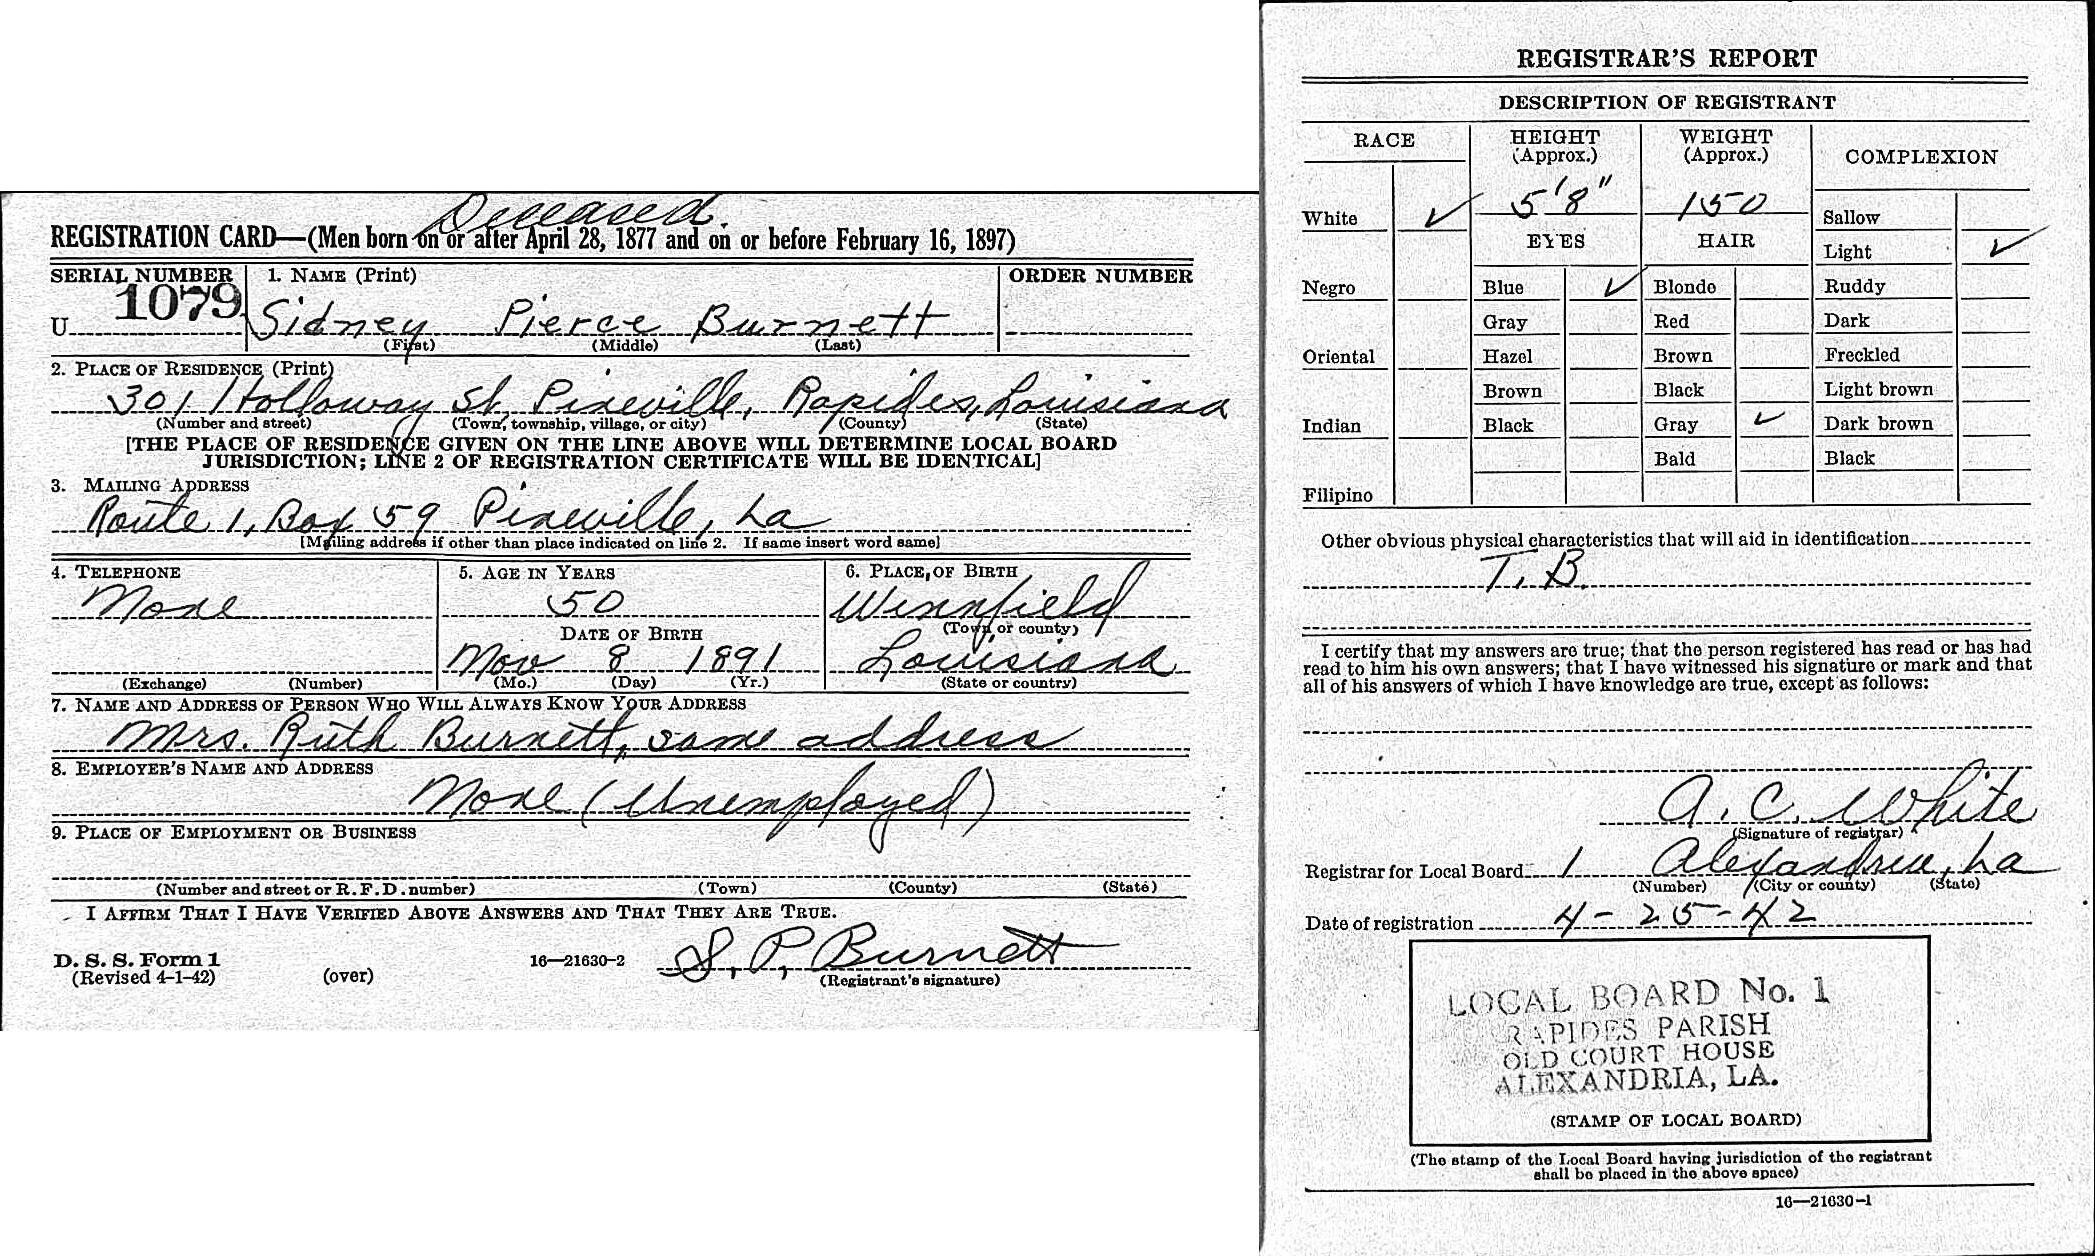 Deceased.
REGISTRATION CARD—(Men born on or after April 28, 1877 and on or before February 16, 1897)
SERIAL NUMBER 1. NAME (Print) ORDER NUMBER
U 1079 Sidney Pierce Burnett
(First) (Middle) (Last)
2. PLACE OF RESIDENCE (Print)
301 Holloway St, Pineville, Rapides, Louisiana
(Number and street) (Town, township, village, or city) (County) (State)
[THE PLACE OF RESIDENCE GIVEN ON THE LINE ABOVE WILL DETERMINE LOCAL BOARD
JURISDICTION; LINE 2 OF REGISTRATION CERTIFICATE WILL BE IDENTICAL]
3. MAILING ADDRESS
Route 1, Box 59 Pineville, La
[Mailing address if other than place indicated on line 2. If same insert word same]
4. TELEPHONE 5. AGE IN YEARS 6. PLACE OF BIRTH
None 50 Winnfield
DATE OF BIRTH (Town or county)
Nov 8 1891 Louisiana
(Exchange) (Number) (Mo.) (Day) (Yr.) (State or country)
7. NAME AND ADDRESS OF PERSON WHO WILL ALWAYS KNOW YOUR ADDRESS
Mrs. Ruth Burnett, same address
8. EMPLOYER'S NAME AND ADDRESS
None (Unemployed)
9. PLACE OF EMPLOYMENT OR BUSINESS
(Number and street or R. F. D. number) (Town) (County) (State)
I AFFIRM THAT I HAVE VERIFIED ABOVE ANSWERS AND THAT THEY ARE TRUE.
D. S. S. Form 1 16—21630-2 S. P. Burnett
(Revised 4-1-42) (over) (Registrant's signature)
REGISTRAR'S REPORT
DESCRIPTION OF REGISTRANT
RACE HEIGHT WEIGHT COMPLEXION
(Approx.) (Approx.)
White ✓ 5'8" 150 Sallow
EYES HAIR Light ✓
Negro Blue ✓ Blonde Ruddy
Gray Red Dark
Oriental Hazel Brown Freckled
Brown Black Light brown
Indian Black Gray ✓ Dark brown
Bald Black
Filipino
Other obvious physical characteristics that will aid in identification
T. B.
I certify that my answers are true; that the person registered has read or has had
read to him his own answers; that I have witnessed his signature or mark and that
all of his answers of which I have knowledge are true, except as follows:
A. C. White
(Signature of registrar)
Registrar for Local Board 1 Alexandria, La
(Number) (City or county) (State)
Date of registration 4-25-42
LOCAL BOARD No. 1
RAPIDES PARISH
OLD COURT HOUSE
ALEXANDRIA, LA.
(STAMP OF LOCAL BOARD)
(The stamp of the Local Board having jurisdiction of the registrant
shall be placed in the above space)
16—21630-1